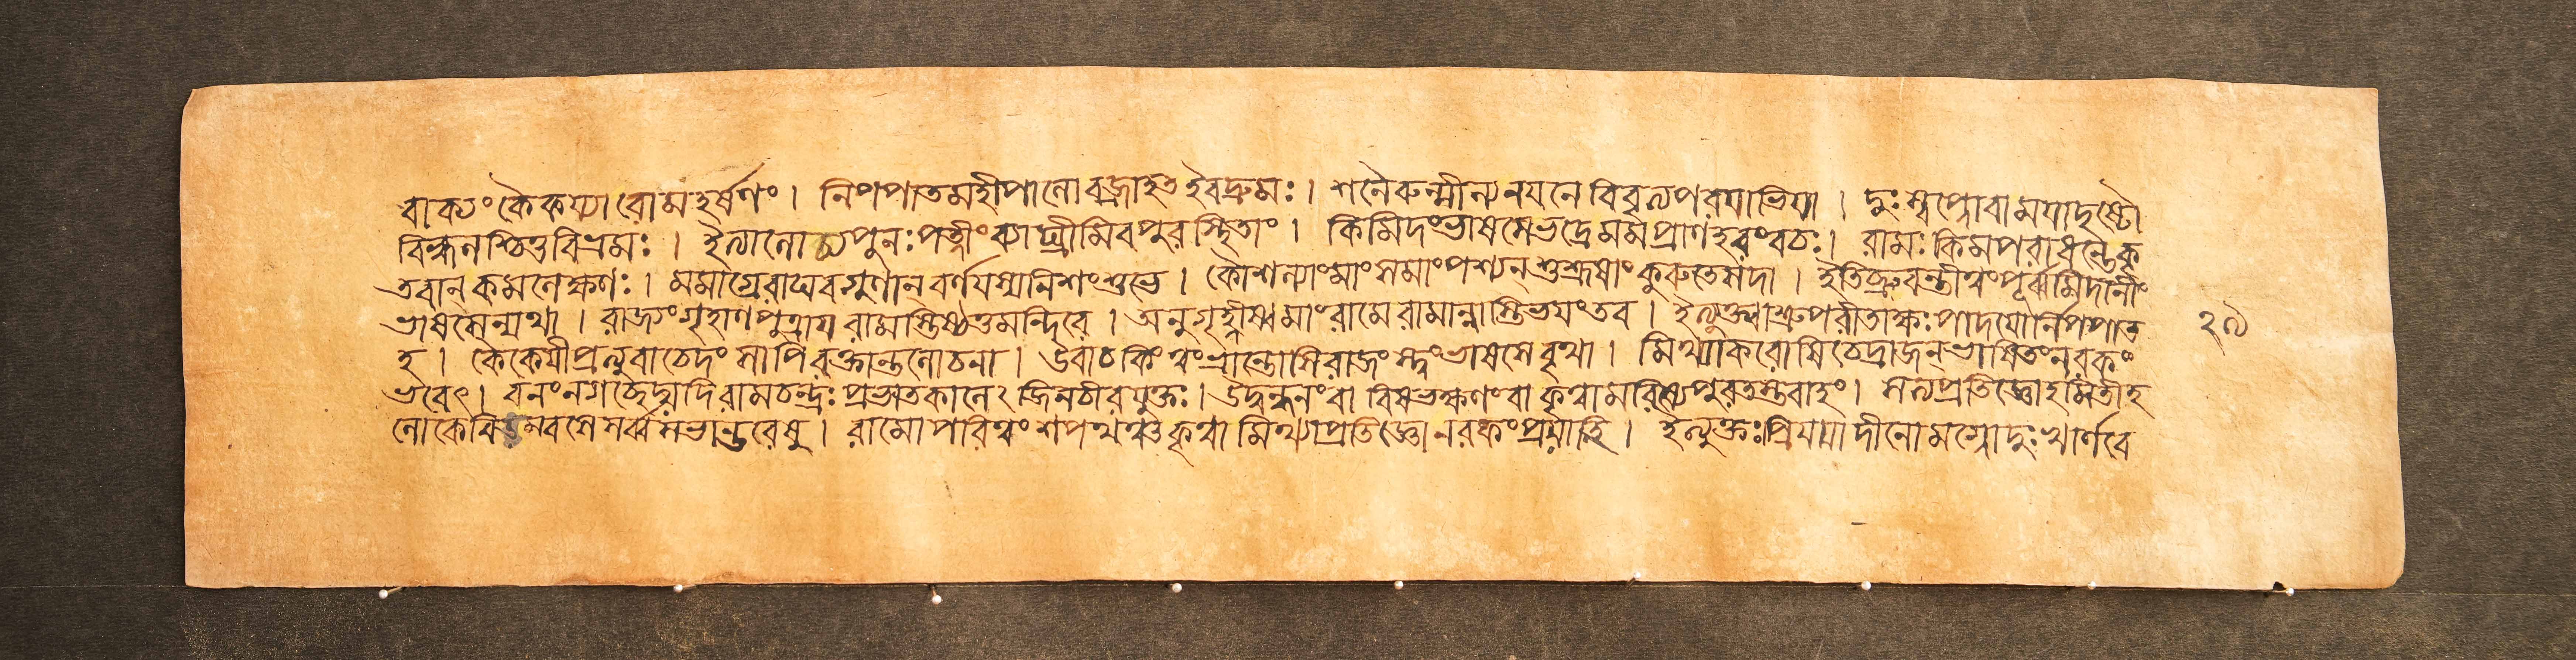 বাক্যং কৈকয্যা রোমহর্ষণং । নিপপাত মহীপালো বজ্রাহত ইবদ্রুমঃ । শনৈরুন্মীল্য নয়নে বিবৃত্য পরয়াভিয়া । দুঃস্বপ্নোবাময়াদৃষ্টো
বিহ্মলশ্চিত্তবিভ্রমঃ । ইত্যালোচ্য পুনঃ পত্নীং ব্যাঘ্রীমিব পুরস্থিতাং । কিমিদংভাষসেভদ্রে মমপ্রাণহরংবচঃ । রামঃ কিমপরাধন্তে কৃ
তবান্ কমলেক্ষণঃ । মমাগ্রেরাঘবগুণান্ বর্ণযস্যনিশংশুভে । কৌশল্যাংমাং সমাংপশ্যন্ শুশ্রূষাং কুরুতেসদা । ইতিব্রুবন্তীত্বংপূর্ব্বমিদানীং
ভাষসেন্যথা । রাজ্যংগৃহাণপুত্রায় রামস্তিষ্ঠতুমন্দিরে । অনুগৃহ্ণীষ্বমাংরামে রামান্নাস্তিভয়ংতব । ইত্যুক্ত্বাশ্রুপরীতাক্ষঃপাদয়োর্নিপপাত ২৯
হ । কৈকেয়ীপ্রত্যুবাচেদং সাপিরক্তান্তলোচনা । উবাচ কিং ত্বংভ্রান্তোসিরাজংস্ত্বংভাষসেবৃথা । মিথ্যাকরোষিচেদ্রাজন্ ভাষিতংনরকং
ভবেৎ । বনংনগচ্ছেদ্যদিরামচন্দ্রঃ প্রভাতকালেঽজিনচীরযুক্তঃ । উদ্বন্ধনংবা বিষভক্ষণংবা কৃত্বামরিষ্যেপুরতস্তবাহং । সত্যপ্রতিজ্ঞোহমিতীহ
লোকে সর্ব্বসভান্তরেষু । রামোপরিত্বং শপথঞ্চকৃত্বা মিথ্যাপ্রতিজ্ঞোনরকংপ্রয়াহি । ইত্যুক্তঃপ্রিয়য়াদীনো মগ্নোদুঃখার্ণবে